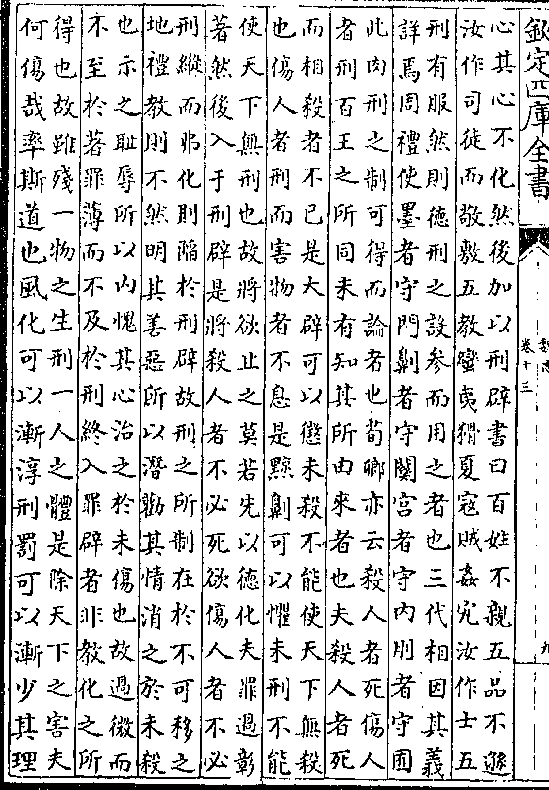 欽定四庫全書
卷十三
心其心不化然後加以刑辟書曰百姓不親五品不遜
汝作司徒而敬敷五教蠻夷猾夏寇賊姦宄汝作士五
刑有服然則德刑之設參而用之者也三代相因其義
詳焉周禮使墨者守門劓者守關宮者守内刖者守囿
此肉刑之制可得而論者也荀卿亦云殺人者死傷人
者刑百王之所同未有知其所由來者也夫殺人者死
而相殺者不已是大辟可以懲未殺不能使天下無殺
也傷人者刑而害物者不息是黥劓可以懼未刑不能
使天下無刑也故將欲止之莫若先以德化夫罪過彰
著然後入于刑辟是將殺人者不必死欲傷人者不必
刑縱而弗化則陷於刑辟故刑之所制在於不可移之
地禮教則不然明其善惡所以潛勸其情消之於未殺
也示之耻辱所以内愧其心治之於未傷也故過微而
不至於著罪薄而不及於刑終入罪辟者非教化之所
得也故雖殘一物之生刑一人之體是除天下之害夫
何傷哉率斯道也風化可以漸淳刑罰可以漸少其理